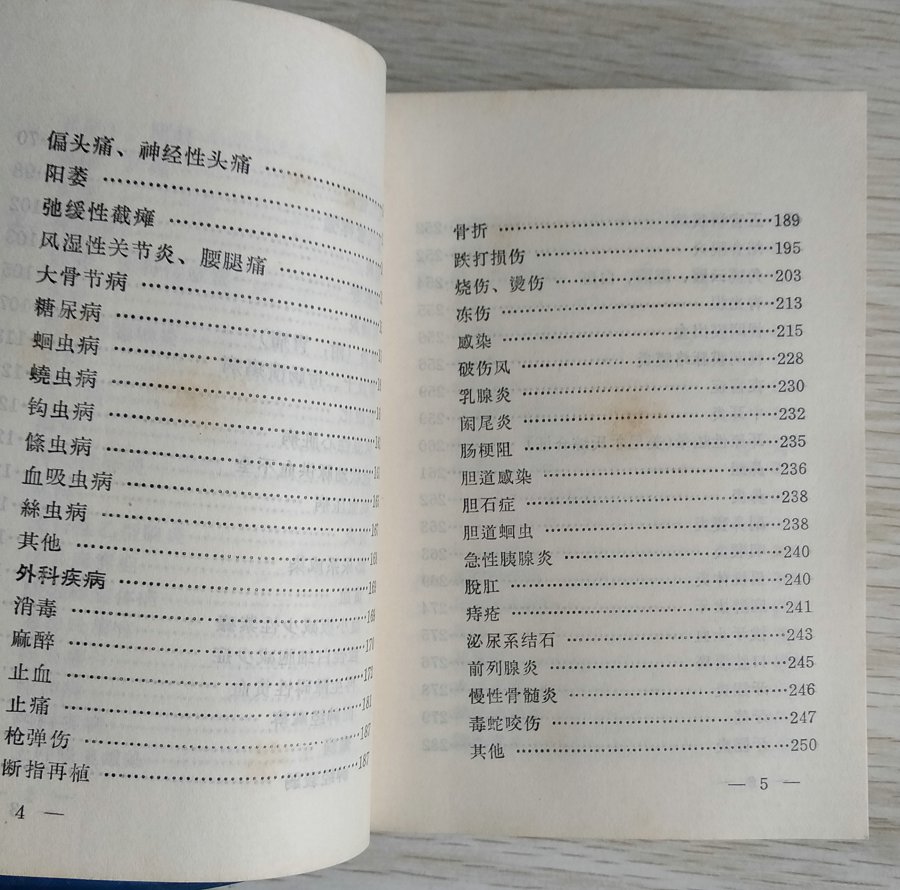 偏头痛、神经性头痛 ……………
阳萎 ……………
弛缓性截瘫 ……………
风湿性关节炎、腰腿痛 ……………
大骨节病 ……………
糖尿病 ……………
蛔虫病 ……………
蟯虫病 ……………
钩虫病 ……………
絛虫病 ……………
血吸虫病 ……………
絲虫病 ……………167
其他 ……………
外科疾病 ……………169
消毒 ……………169
麻醉 ……………170
止血 ……………179
止痛 ……………181
枪弹伤 ……………187
断指再植 ……………187
4 —
骨折 ……………189
跌打损伤 ……………195
烧伤、烫伤 ……………203
冻伤 ……………213
感染 ……………215
破伤风 ……………228
乳腺炎 ……………230
阑尾炎 ……………232
肠梗阻 ……………235
胆道感染 ……………236
胆石症 ……………238
胆道蛔虫 ……………238
急性胰腺炎 ……………240
脫肛 ……………240
痔疮 ……………241
泌尿系结石 ……………243
前列腺炎 ……………245
慢性骨髓炎 ……………246
毒蛇咬伤 ……………247
其他 ……………250
— 5 —